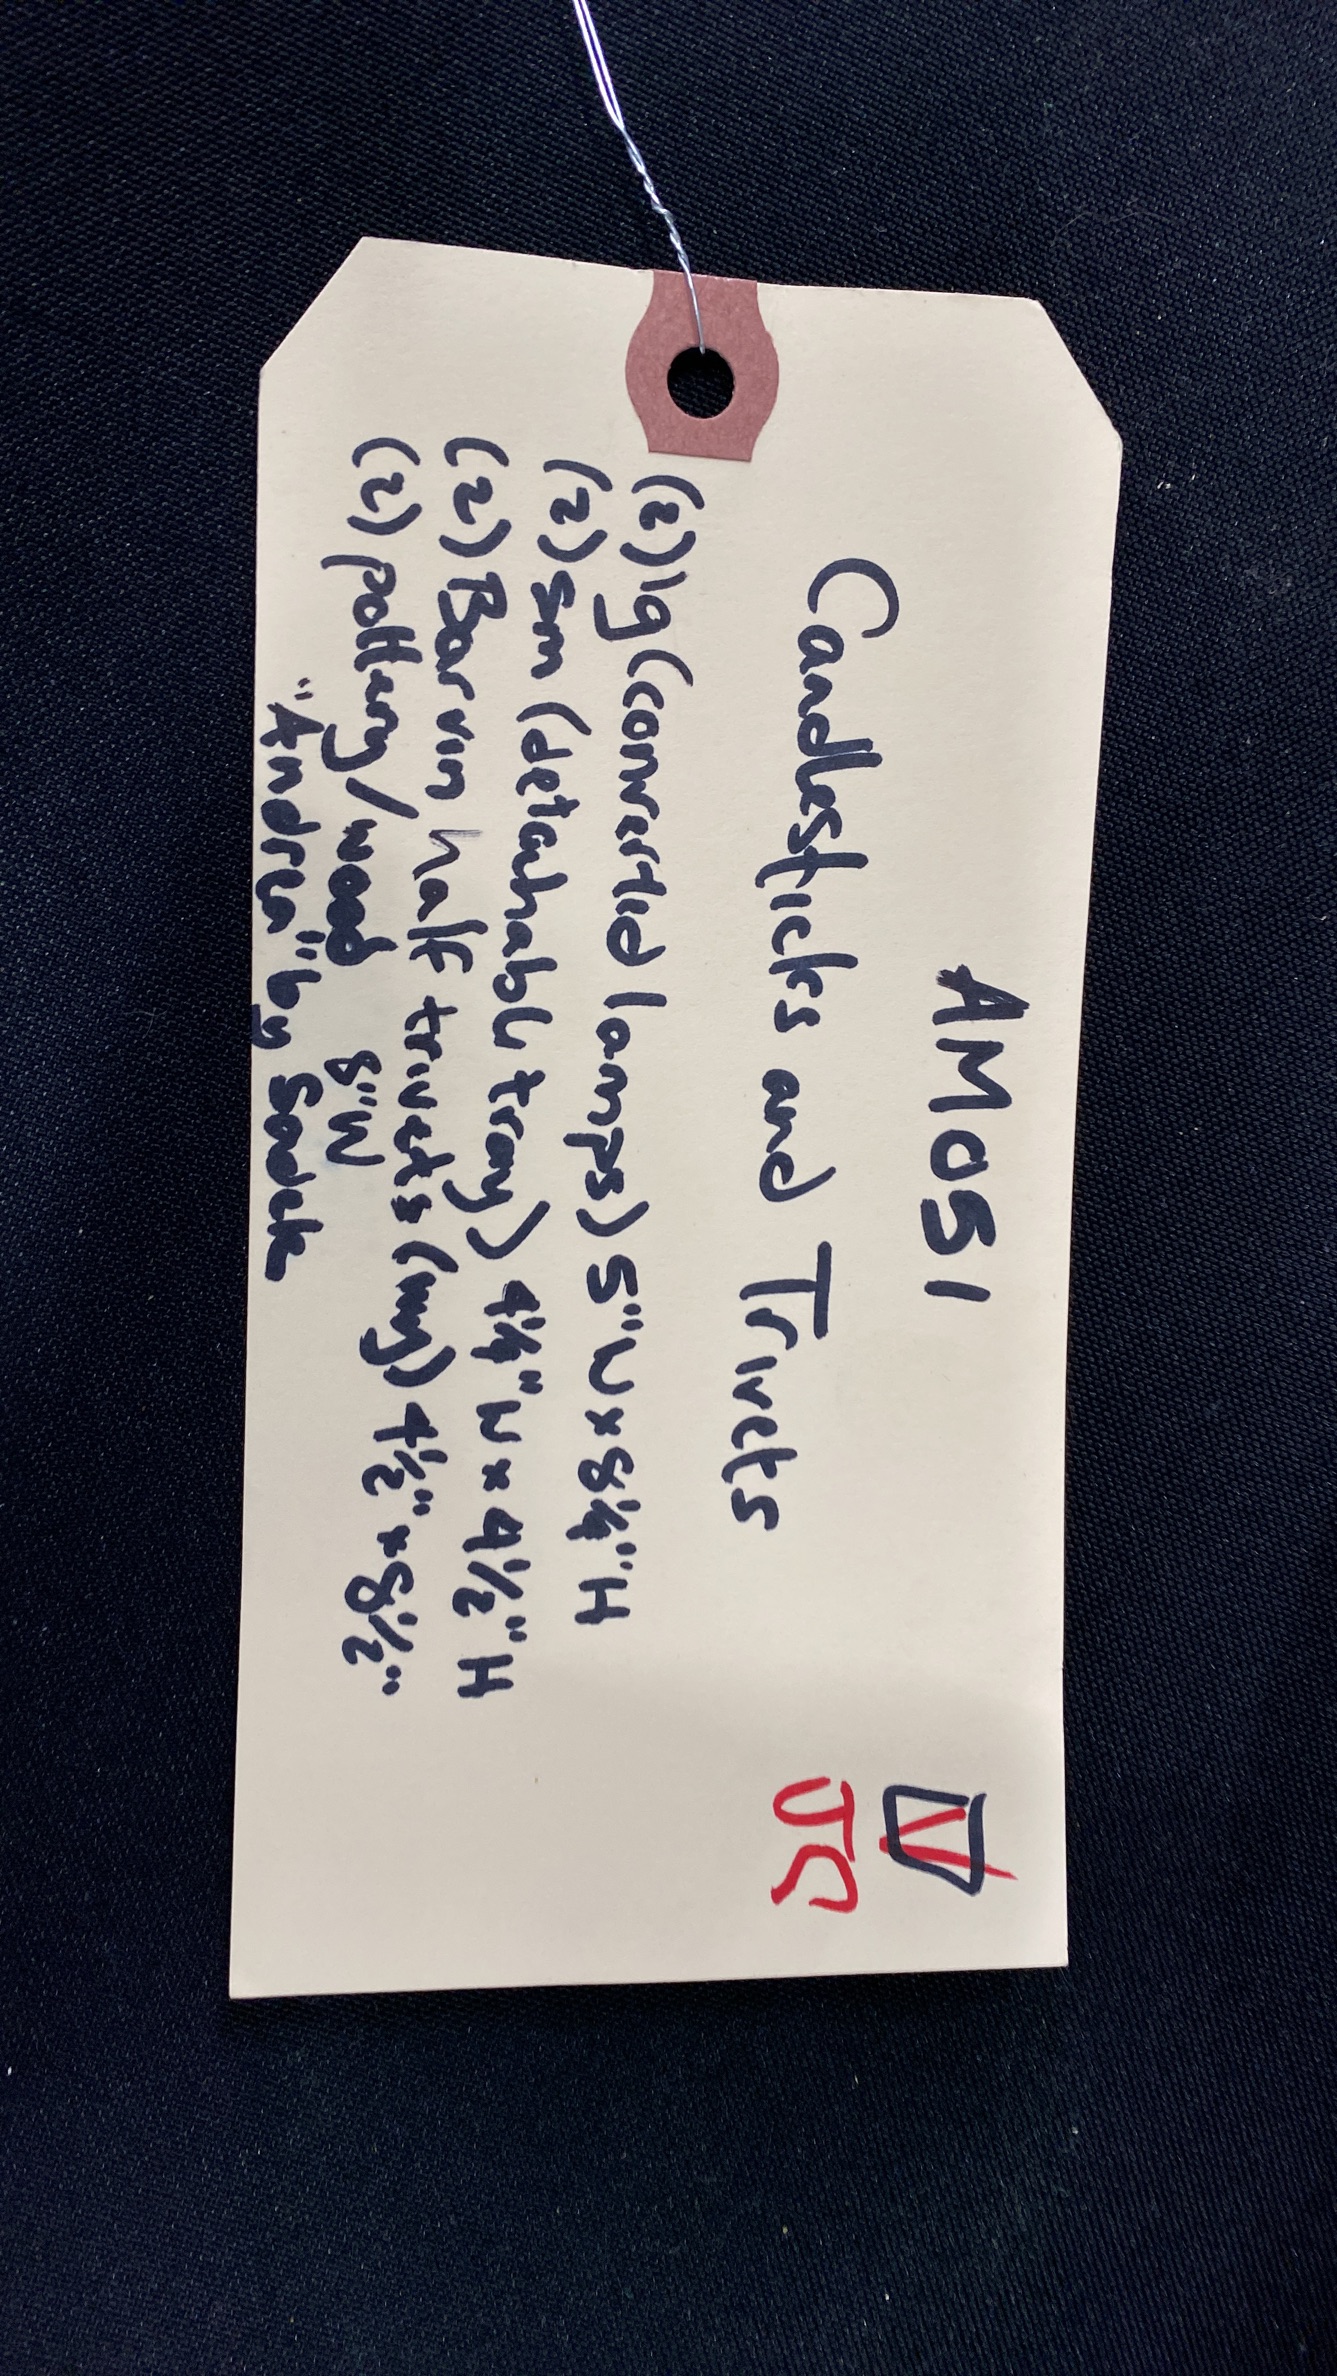 AM051
Candlesticks and Trivets
(2) lg (converted lamps) 5" W x 8 1/4" H
(2) sm (detachable tray) 4 1/4" W x 4 1/2" H
(2) Barvin half trivets (mg) 4 1/2" x 8 1/2"
(2) pottery/wood 8" W
"Andrea" by Sadek
JC